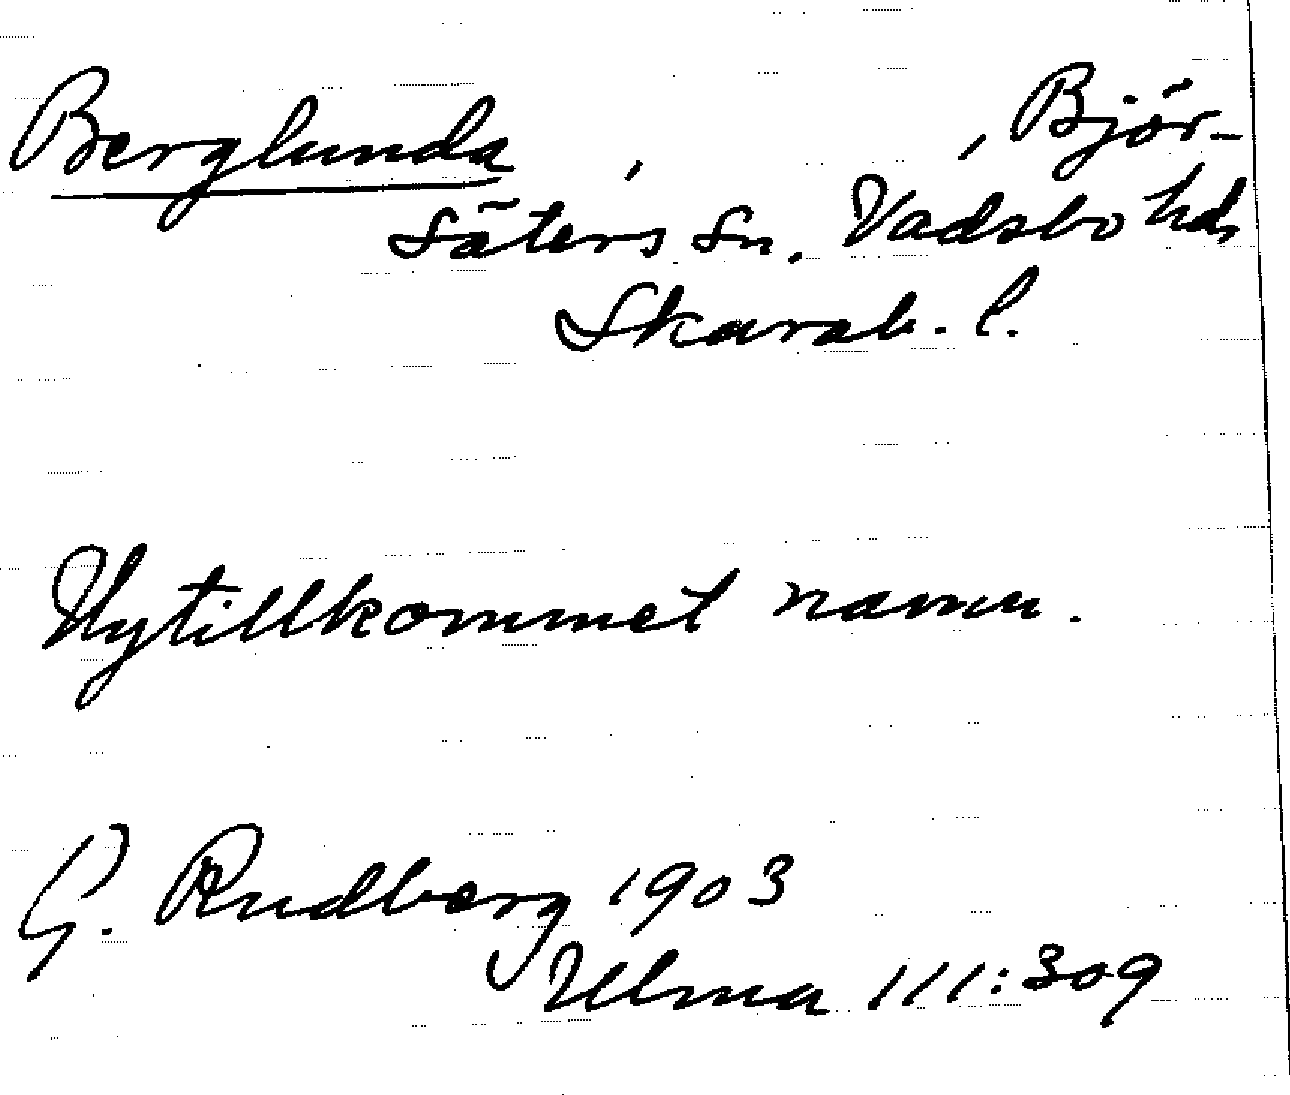 Berglunda , , Björ-
säters sn. Vadsbo hd,
Skarab. l.
Nytillkommet namn.
G. Rudberg 1903
Ulma 111:309